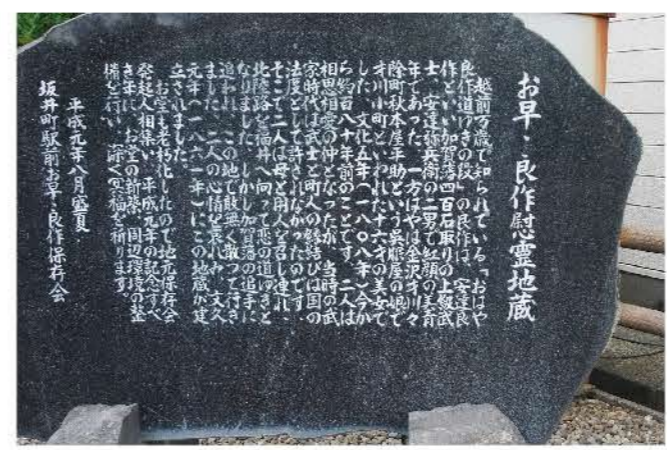 お早・良作慰霊地蔵
越前万歳で知られている「おはや
良作道ゆきの段」の良作は、安達良
作といい加賀藩四百石取りの上級武
士、安達弥兵衛の二男で紅顔の美青
年であった。一方はやは金沢才川々
除町秋本屋平助という呉服屋の娘で
才川小町といわれた十六才の美女で
した。文化五年(一八〇八年)今か
ら約百八十年前のことです。二人は
相思相愛の仲となったが、当時の武
家時代は武士と町人の縁結びは国の
法度として許されなかったのです。
そこで二人は母と用人を召し連れ、
北陸路を福井へ向って恋の道ゆきと
なりました。しかし加賀藩の追手に
追われ、この地で敢無く散って行き
ました。二人の心情を哀れみ、文久
元年(一八六一年)にこの地蔵が建
立されました。
お堂も老朽化したので地元保存会
発起人相集い、平成元年の記念すべ
き年に、お堂の新築、周辺環境の整
備を行い、深く冥福を祈ります。
平成元年八月盛夏
坂井町駅前お早・良作保存会